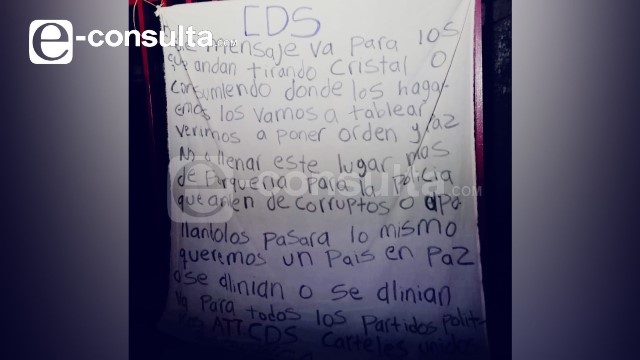 e-consulta.com
CDS
mensaje va para los
que andan tirando cristal o
consumiendo donde los haga-
emos los vamos a tablear
venimos a poner orden y paz
No a llenar este lugar mas
de Porqueria para la Policia
que anden de corruptos o apo
llantolos pasara lo mismo
queremos un Pais en Paz
o se dlinian o se dlinian
va para todos los Partidos polit-
ATT CDS Carteles unidos
e-consulta.com